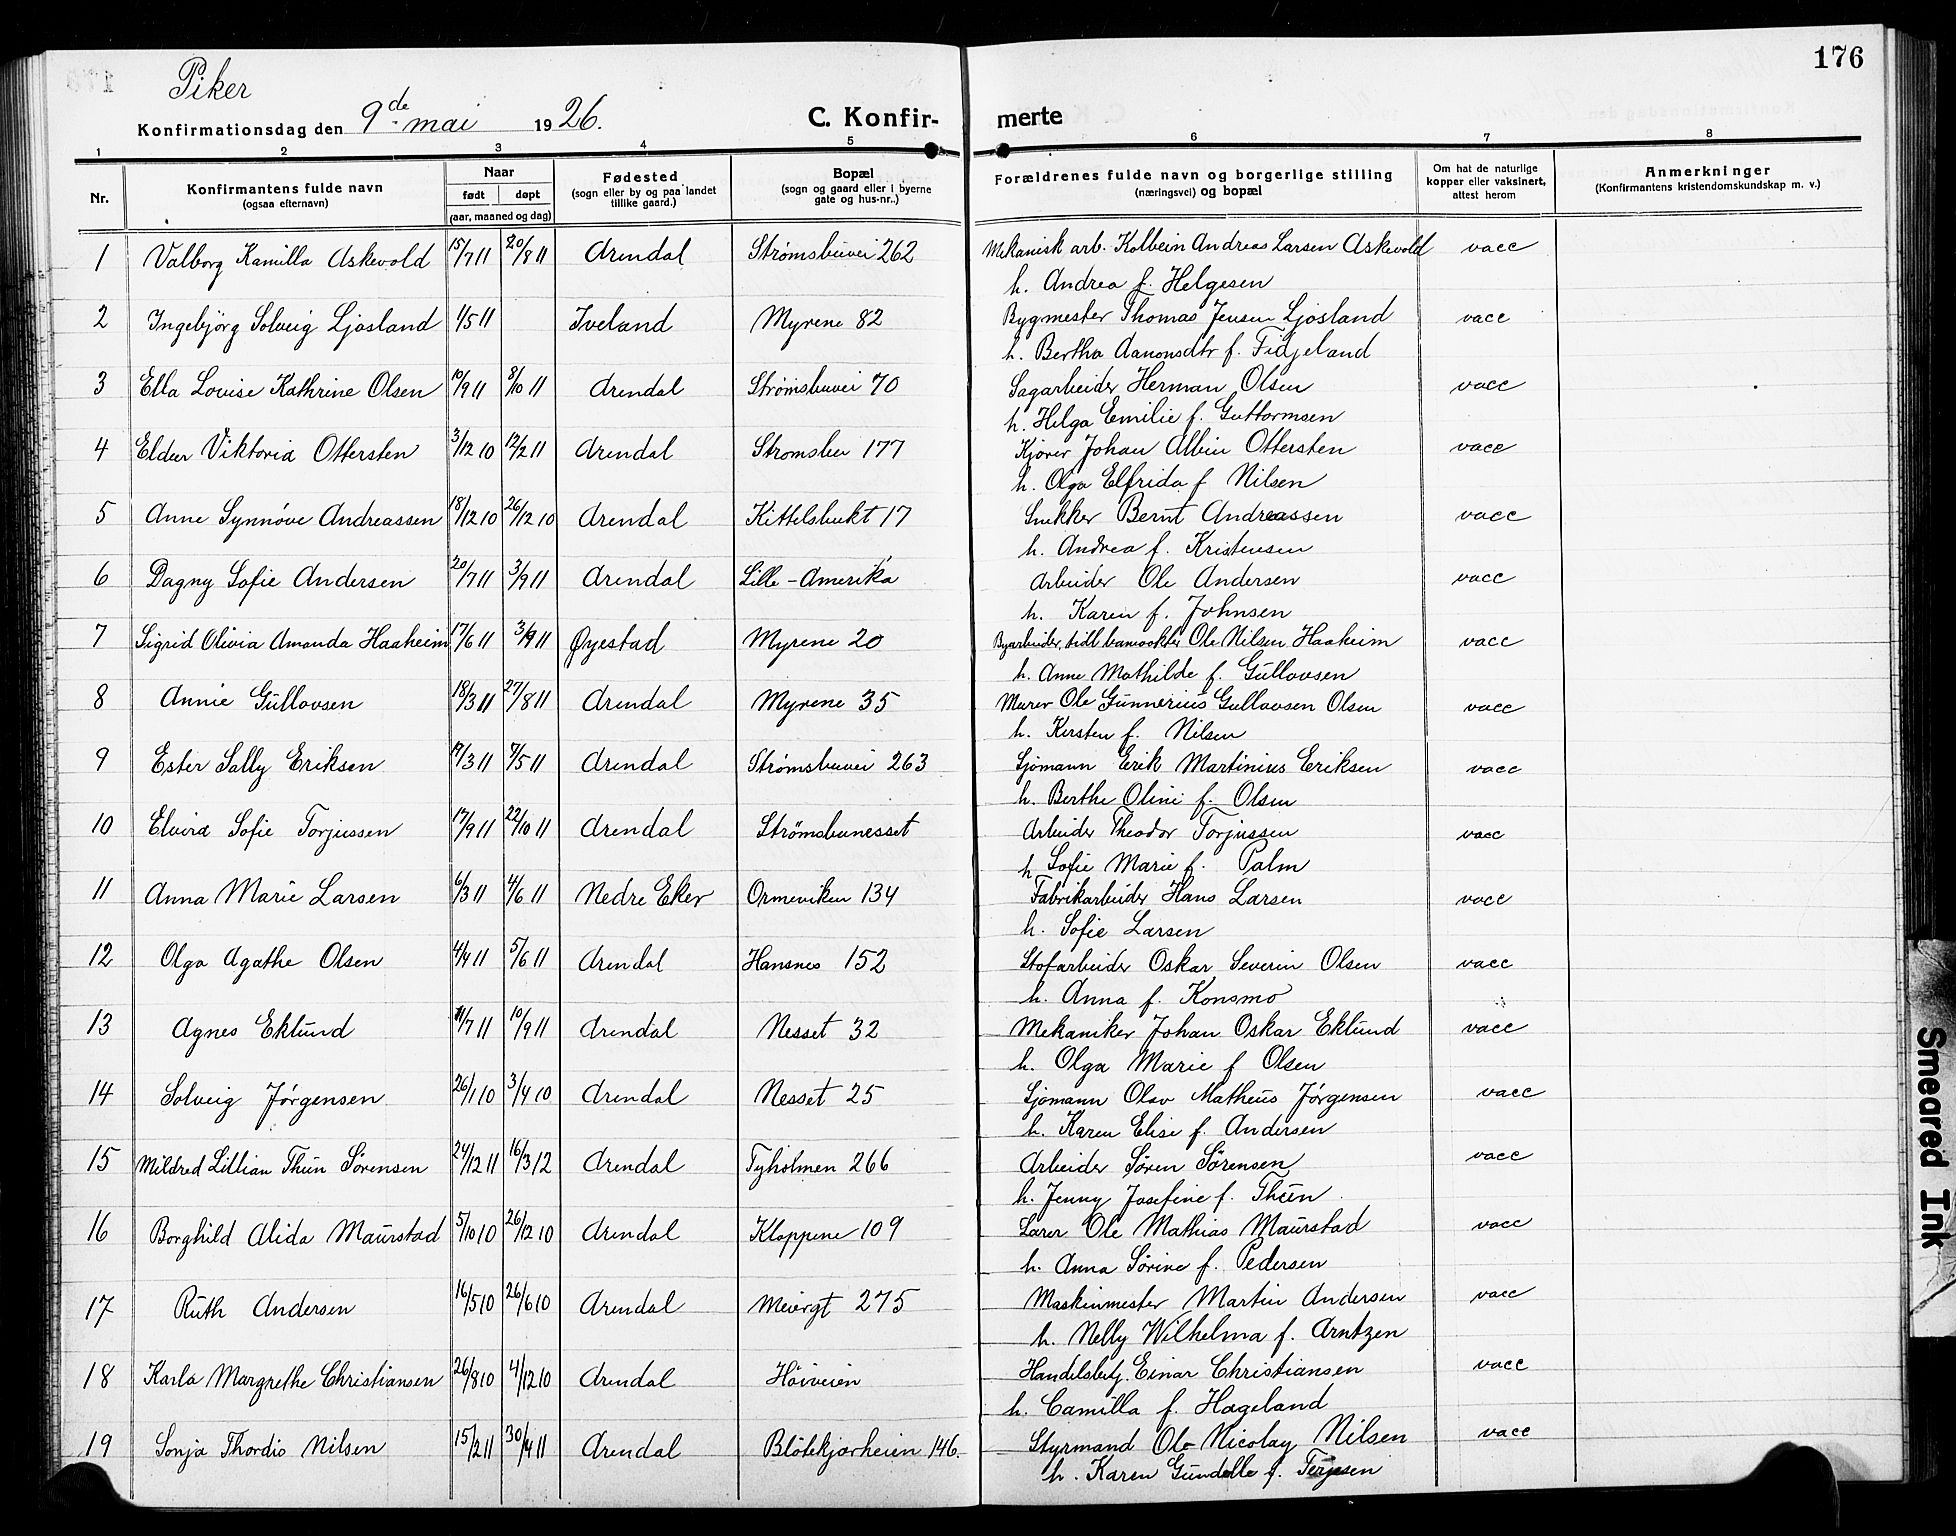 176
Piker
Konfirmationsdag den 9de mai 1926.
C. Konfir-merte
1 2 3 4 5 6 7 8
Nr.
Konfirmantens fulde navn
(ogsaa efternavn)
Naar
født døpt
(aar, maaned og dag)
Fødested
(sogn eller by og paa landet
tillike gaard.)
Bopæl
(sogn og gaard eller i byerne
gate og hus-nr.)
Forældrenes fulde navn og borgerlige stilling
(næringsvei) og bopæl
Om hat de naturlige
kopper eller vaksinert,
attest herom
Anmerkninger
(Konfirmantens kristendomskundskap m. v.)
1 Valborg Kamilla Askevold 15/7 11 20/8 11 Arendal Strømsbuvei 262 Mekanisk arb. Kolbein Andreas Larsen Askevold vacc
h. Andrea f. Helgesen
2 Ingebjörg Solveig Ljosland 1/5 11 Iveland Myrene 82 Bygmester Thomas Jensen Ljosland vacc
h. Bertha Aanonsdtr f. Fidjeland
3 Ella Lovise Kathrine Olsen 10/9 11 8/10 11 Arendal Strømsbuvei 70 Sagarbeider Herman Olsen vacc
h. Helga Emilie f. Guttormsen
4 Eldur Viktoria Ottersten 3/12 10 12/2 11 Arendal Stromsbu 177 Kjører Johan Albin Ottersten vacc
h. Olga Elfrida f Nilsen
5 Anne Synnöve Andreassen 18/12 10 26/12 10 Arendal Kittelsbukt 17 Snekker Bernt Andreassen vacc
h. Andrea f. Kristensen
6 Dagny Sofie Andersen 20/7 11 3/9 11 Arendal Lille-Amerika Arbeider Ole Andersen vacc
h. Karen f. Johnsen
7 Sigrid Olivia Amanda Haaheim 17/6 11 3/9 11 Øyestad Myrene 20 Byarbeider, tidl banevokter Ole Nilsen Haaheim vacc
h. Anne Mathilde f. Gullovsen
8 Annie Gullovsen 18/3 11 27/8 11 Arendal Myrene 35 Murer Ole Gunnerius Gullovsen Olsen vacc
h. Kirsten f. Nilsen
9 Ester Sally Eriksen 17/3 11 7/5 11 Arendal Strømsbuvei 263 Sjømann Erik Martinius Eriksen vacc
h. Berthe Oline f. Olsen
10 Elvira Sofie Torjussen 17/9 11 22/10 11 Arendal Strømsbunesset Arbeider Theodor Torjussen vacc
h Sofie Marie f. Palm
11 Anna Marie Larsen 6/3 11 4/6 11 Nedre Eker Ormeviken 134 Fabrikarbeider Hans Larsen vacc
h. Sofie Larsen
12 Olga Agathe Olsen 4/4 11 5/6 11 Arendal Hansnes 152 Stofarbeider Oskar Severin Olsen vacc
h. Anna f. Konsmo
13 Agnes Eklund 11/7 11 10/9 11 Arendal Nesset 32 Mekaniker Johan Oskar Eklund vacc
h. Olga Marie f Olsen
14 Solveig Jörgensen 26/1 10 3/4 10 Arendal Nesset 25 Sjomann Olav Matheus Jörgensen vacc
h. Karen Elise f. Andersen
15 Mildred Lillian Thun Sörensen 24/12 11 16/3 12 Arendal Tyholmen 266 Arbeider Sören Sörensen vacc
h. Jenny Josefine f. Thun
16 Borghild Alida Maurstad 5/10 10 26/12 10 Arendal Kloppene 109 Lærer Ole Mathias Maurstad vacc
h. Anna Sörine f. Pedersen
17 Ruth Andersen 16/5 10 26/6 10 Arendal Meiergt 275 Maskinmester Martin Andersen vacc
h. Nelly Wilhelma f. Arntzen
18 Karla Margrethe Christiansen 26/8 10 4/12 10 Arendal Höiveien Handelsbetj. Einar Christiansen vacc
h. Camilla f. Hageland
19 Sonja Thordis Nilsen 15/2 11 30/4 11 Arendal Blötekjærheien 146. Styrmand Ole Nicolay Nilsen vacc
h. Karen Gundelle f. Terjesen
Smeared Ink